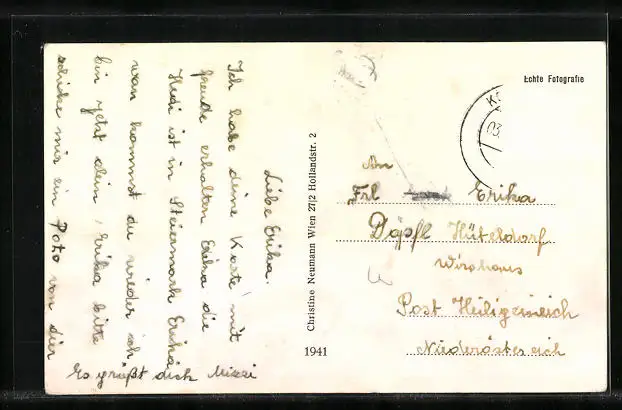 Liebe Erika.
Ich habe deine Karte mit
freude erhalten Erika die
Hedi ist in Steiermark Erika
wan kommst du wieder ich
bin jetzt alein, Erika bitte
schicke mir ein Poto von dier
Es grüßt dich Mizzi
Christine Neumann Wien 27/2 Hollandstr. 2
1941
Echte Fotografie
An
Frl Erika
Döpfl Hüteldorf
Wirzhaus
Post Heiligeneich
Niederösterreich